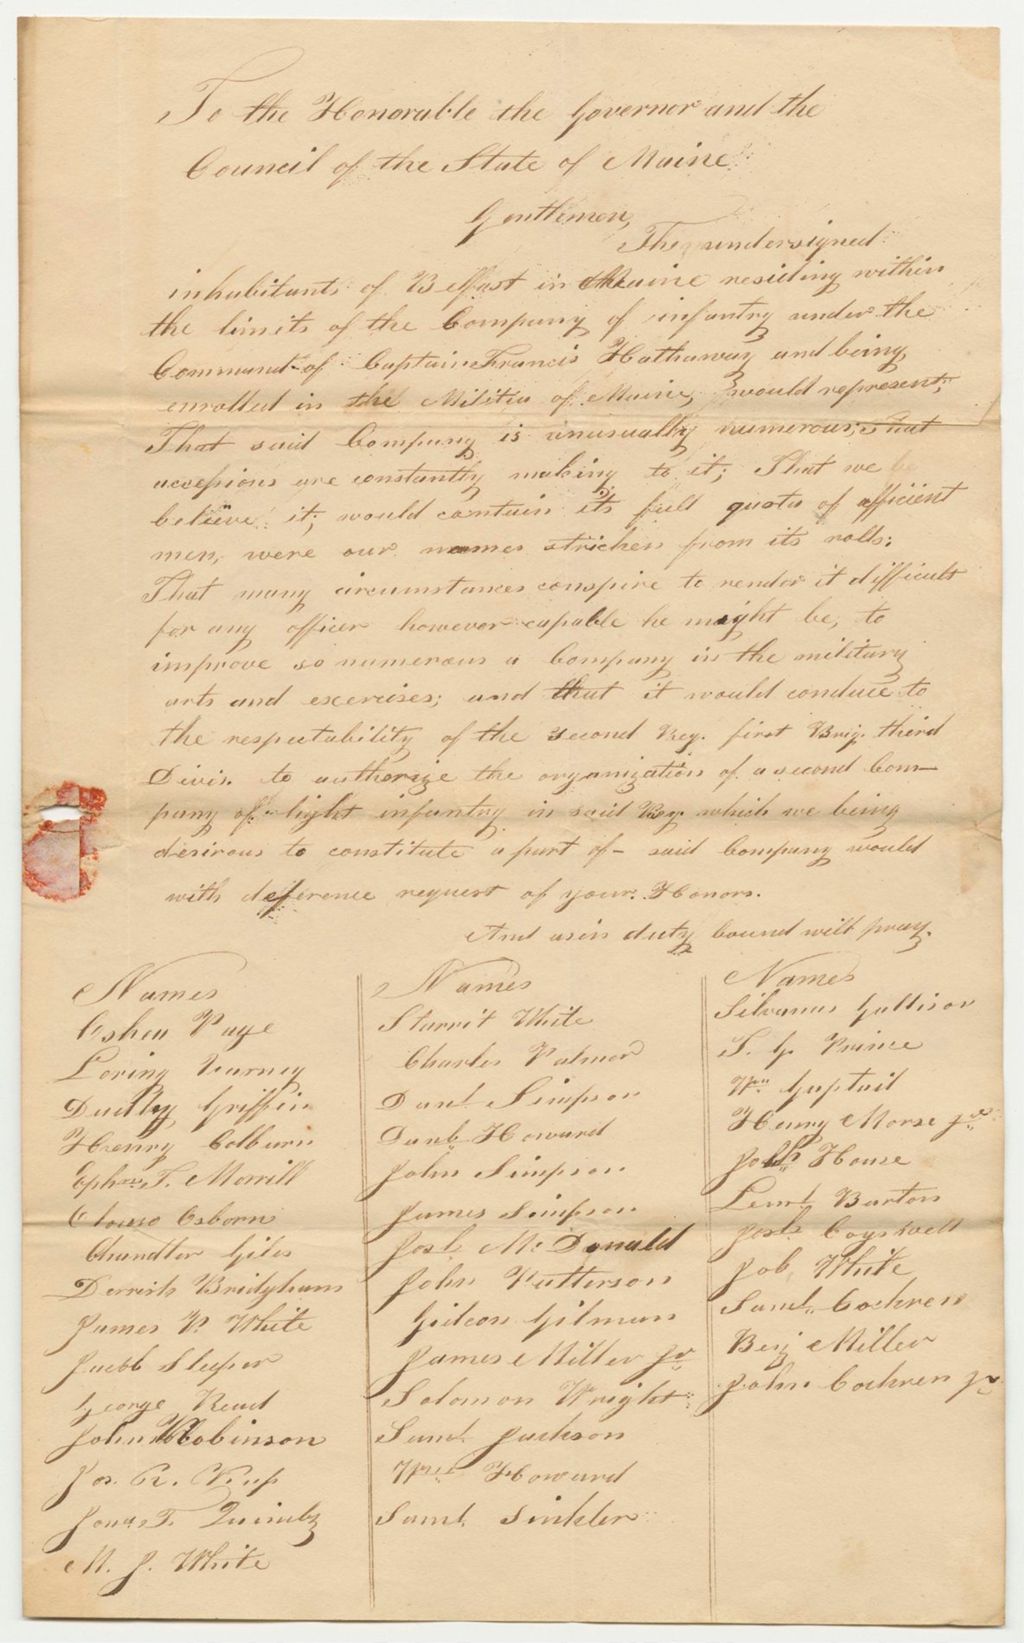 To the Honorable the Governor and the
Council of the State of Maine
Gentlemen,
The undersigned
inhabitants of Belfast in Maine residing within
the limits of the Company of infantry under the
Command of Captain Francis Hathaway and being
enrolled in the Militia of Maine, would represent;
That said Company is unusually numerous; that
accessions are constantly making to it; That we
believe it; would contain its full quota of efficient
men, were our names stricken from its rolls;
That many circumstances conspire to render it difficult
for any officer however capable he might be, to
improve so numerous a Company in the military
arts and exercises; and that it would conduce to
the respectability of the second Reg. first Brig. third
Divis. to authorize the organization of a second Com-
pany of light infantry in said Reg. which we being
desirous to constitute a part of said Company would
with deference request of your Honors.
And as in duty bound will pray.
Names
Oshea Page
Loring Varney
Dudley Griffin
Henry Colburn
Ephm. T. Morrill
Alonzo Osborn
Chandler Giles
Bridgham
James P. White
Jacob Sleeper
George Read
John Robinson
Jos. R.
Jonas T. Quimby
M. J. White
Names
Sturrit White
Charles Palmer
Danl. Simpson
Danl. Howard
John Simpson
James Simpson
Josh. McDonald
John Patterson
Gideon Gilman
James Miller Jr
Solomon Wright
Saml. Jackson
Wm. Howard
Saml. Sinkler
Names
Silvanus Gattison
S. G. Prince
Wm Guptail
Henry Morse Jr
House
Leml. Barton
Josh. Cogswell
Job White
Saml. Cochren
Benj Miller
John Cochren Jr